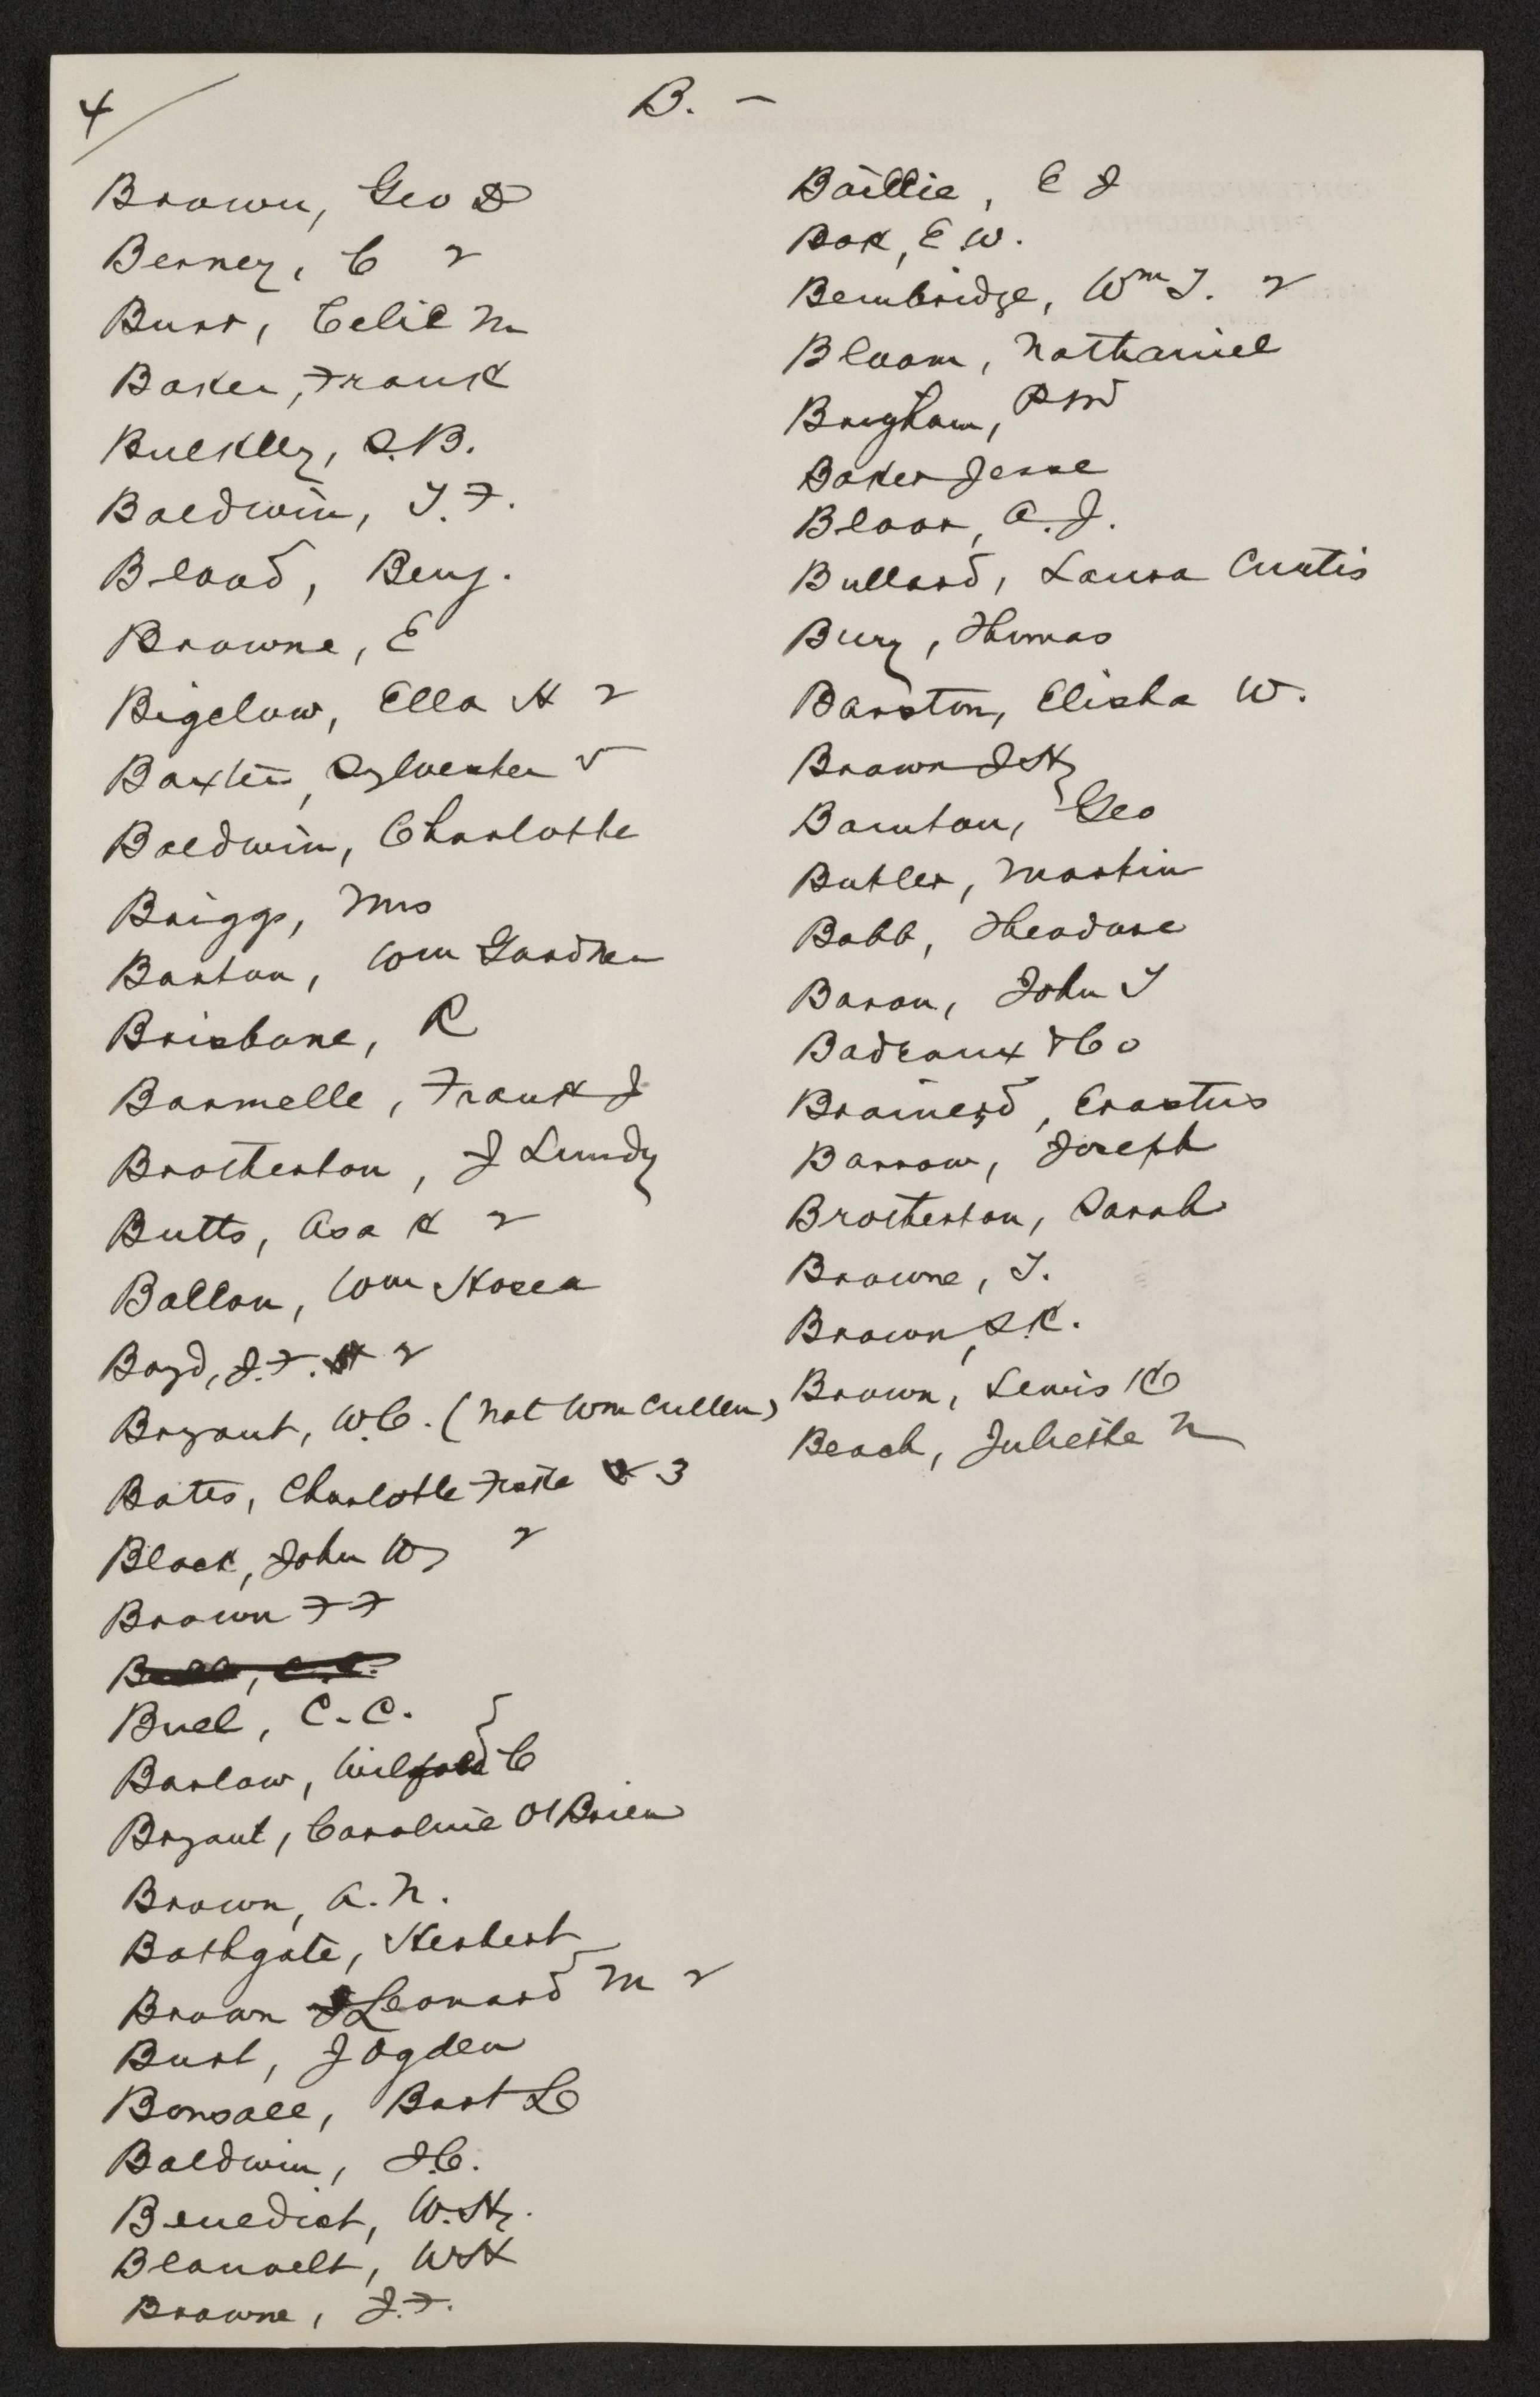 4
B. —
Brown, Geo D
Berney, C 2
Burr, Celie M
Baker, Frank
Bulkley, S.B.
Baldwin, T. F.
Blood, Benj.
Browne, E
Bigelow, Ella H 2
Baxter, Sylvester 5
Baldwin, Charlotte
Briggs, Mrs
Barton, Wm Gardner
Brisbane, R
Barmelle, Frank J
Brotherton, J Lundy
Butts, Asa K 2
Ballou, Wm Hosea
Boyd, J. F. 2
Bryant, W.C. (not Wm Cullen)
Bates, Charlotte Fiske 3
Black, John W 2
Brown F F
Buel, C. C.
Barlow, Wilford C
Bryant, Caroline O'Brien
Brown, A. N.
Bathgate, Herbert
Brown Leonard M 2
Burt, J Ogden
Bonsall, Bart L
Baldwin, J.C.
Benedict, W. H.
Blauvelt, W H
Browne, J. F.
Baillie, E J
Bok, E. W.
Bembridge, Wm T. 2
Bloom, Nathaniel
Brigham,
Baker Jesse
Bloor, A. J.
Bullard, Laura Curtis
Bury, Thomas
Barston, Elisha W.
Brown J H
Barnton, Geo
Butler, Martin
Babb, Theodore
Baron, John T
Badeaux & Co
Brainerd, Erastus
Barrow, Joseph
Brotherton, Sarah
Browne, T.
Brown, S. K.
Brown, Lewis K
Beach, Juliette H